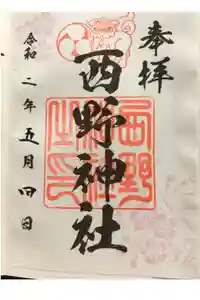 奉拝
西野神社
西野神社之印
令和二年五月四日